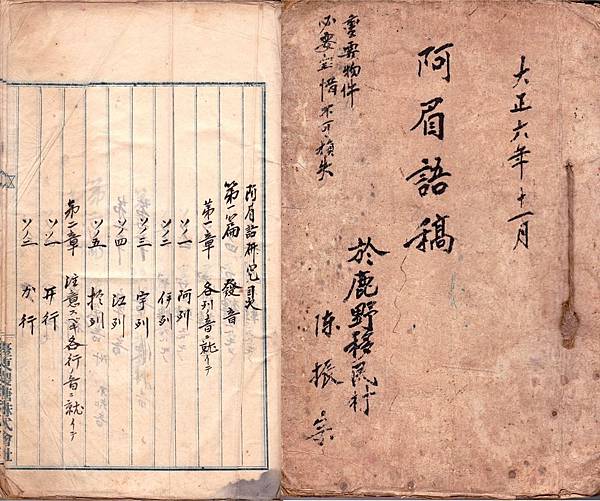 大正六年十一月
阿眉語稿
於鹿野移民村
陳振宗
重要物件
必要宝惜不可損失
阿眉語研究目次
第一篇 發音
第一章 各列ノ音ニ就イテ
ソノ一 阿列
ソノ二 伊列
ソノ三 宇列
ソノ四 江列
ソノ五 於列
第二章 注意スベキ各行ノ音ニ就イテ
ソノ一 ア行
ソノ二 カ行
臺東製糖株式會社